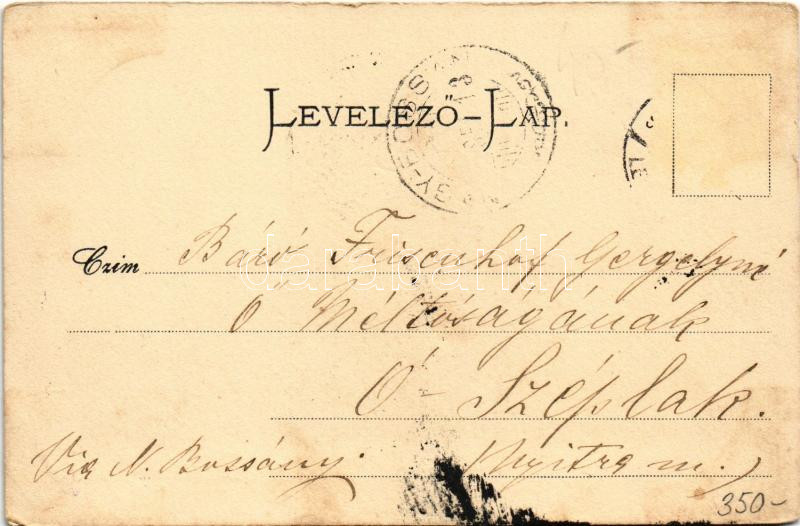 LEVELEZŐ-LAP.
GY-BOSSÁN
LE
Czim Báró Friesenhof Gergelyné
Ő Méltóságának
Ó Széplak.
Via N. Bossány. (Nyitra m.)
350-
darabanth